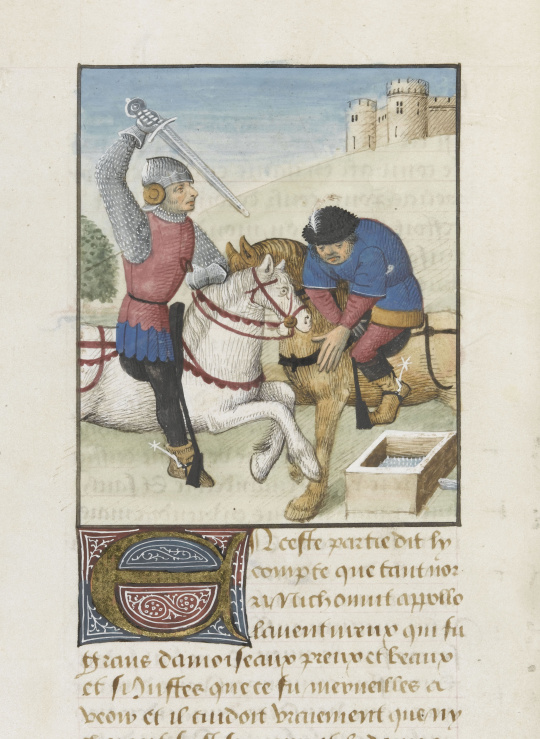 En ceste partie dit ly
compte que tant nor
ry Nichorant appollo
lauentureux qui fu
grans damoiseaux preux et beaux
et si Justes que ce fu merueilles a
veoir Et il cuidoit vraiement que ny